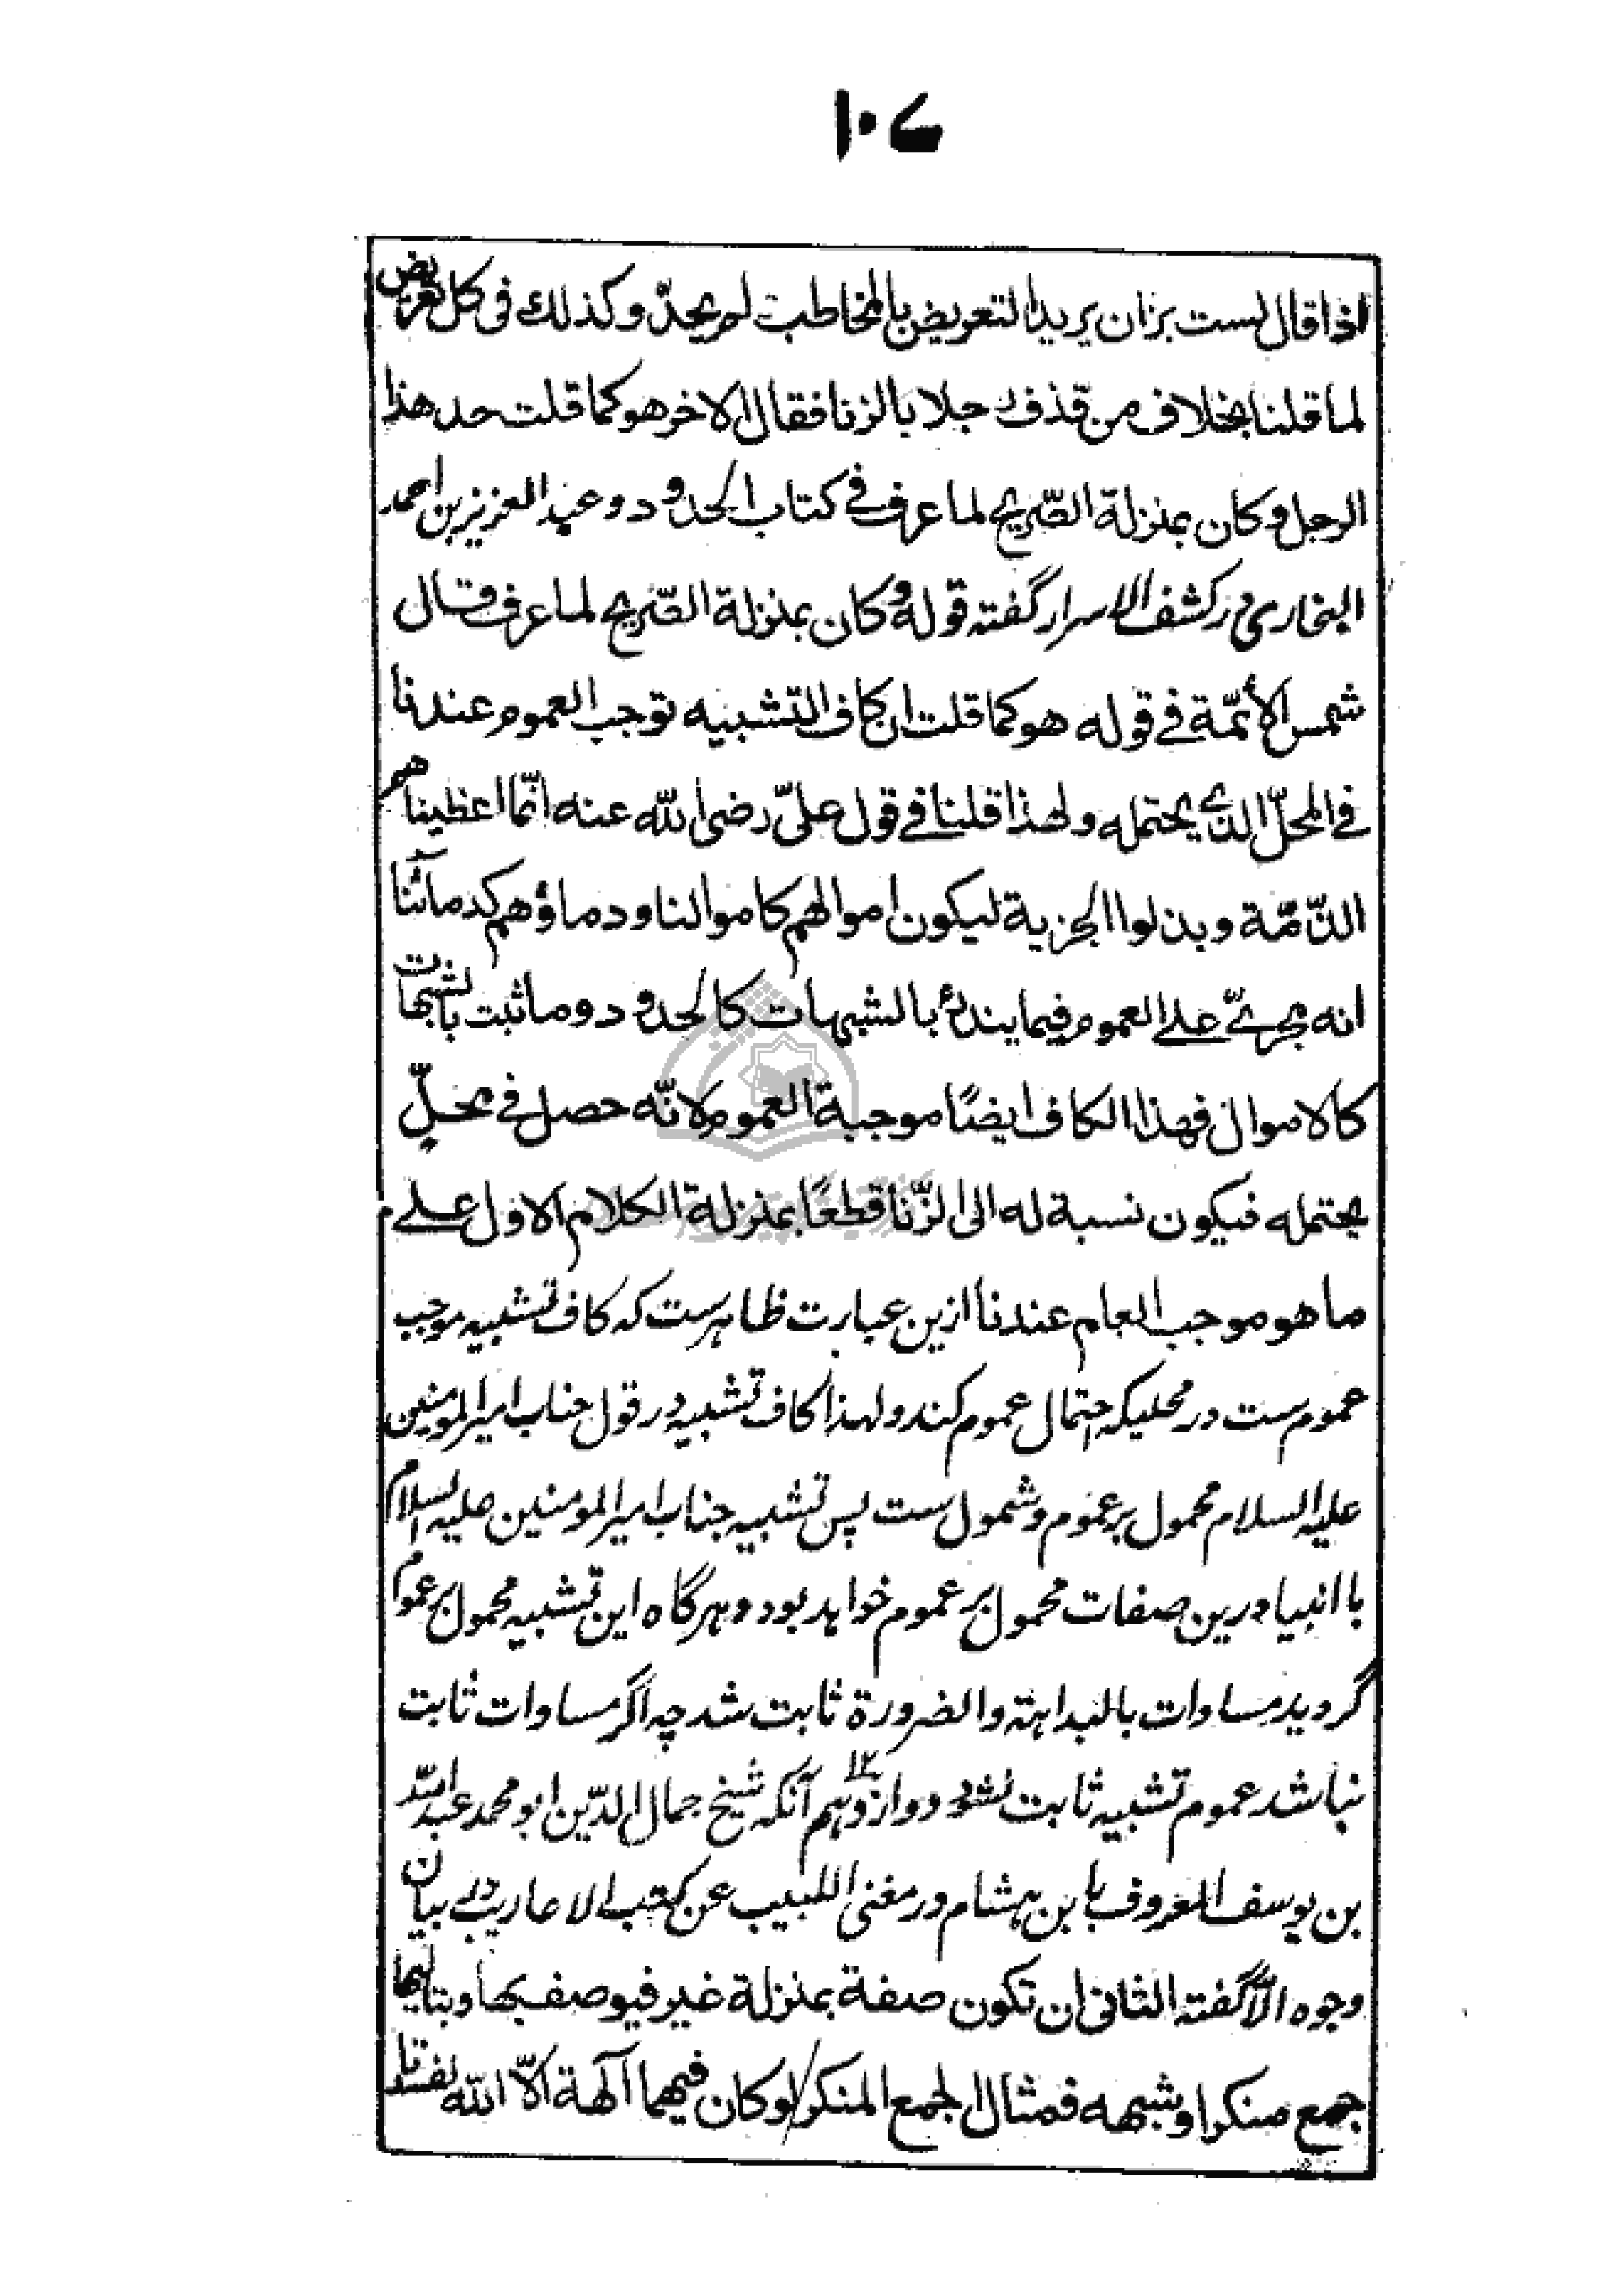 ۱۰۷
اذا قال لست بزان يريد التعريض بالمخاطب لم يحدّ وكذلك فى كل تعريض
لما قلنا بخلاف من قذف رجلا بالزنا فقال الاخر هو كما قلت حد هذا
الرجل وكان بمنزلة الصّريح لما عرف فے كتاب الحدود و عبد العزيز بن احمد
البخارى در كشف الاسرار گفته قوله وكان بمنزلة الصّريح لما عرف قال
شمس الأئمّة فے قوله هو كما قلت ان كاف التشبيه توجب العموم عندنا
فے المحلّ الذے يحتمله ولهذا قلنا فے قول علىّ رضى الله عنه انّما اعطيناهم
الذّمّة وبذلوا الجزية ليكون اموالهم كاموالنا ودماؤهم كدمآئنا
انه مجرىّ علے العموم فيما يندرئ بالشبهات كالحدود وما ثبت بالشبهات
كالاموال فهذا الكاف ايضًا موجبة العموم لانّه حصل فے محلّ
يحتمله فيكون نسبة له الى الزّنا قطعًا بمنزلة الكلام الاول علے
ما هو موجب العام عندنا ازين عبارت ظاهرست كه كاف تشبيه موجب
عموم ست در محليكه احتمال عموم كند ولهذا كاف تشبيه در قول جناب امير المومنين
عليه السلام محمول بر عموم و شمول ست پس تشبيه جناب امير المومنين عليه السلام
با انبيا درين صفات محمول بر عموم خواهد بود و هرگاه اين تشبيه محمول بر عموم
گرديد مساوات بالبداهة والضرورة ثابت شد چه اگر مساوات ثابت
نباشد عموم تشبيه ثابت نشود دوازدهم ۱۲ آنكه شيخ جمال الدّين ابو محمد عبد الله
بن يوسف المعروف بابن هشام در مغنى اللبيب عن كتب الاعاريب در بيان
وجوه الّا گفته الثانى ان تكون صفة بمنزلة غير فيوصف بها وبتاليها
جمع منكر او شبهه فمثال الجمع المنكر لو كان فيهما آلهة الّا الله لفسدتا